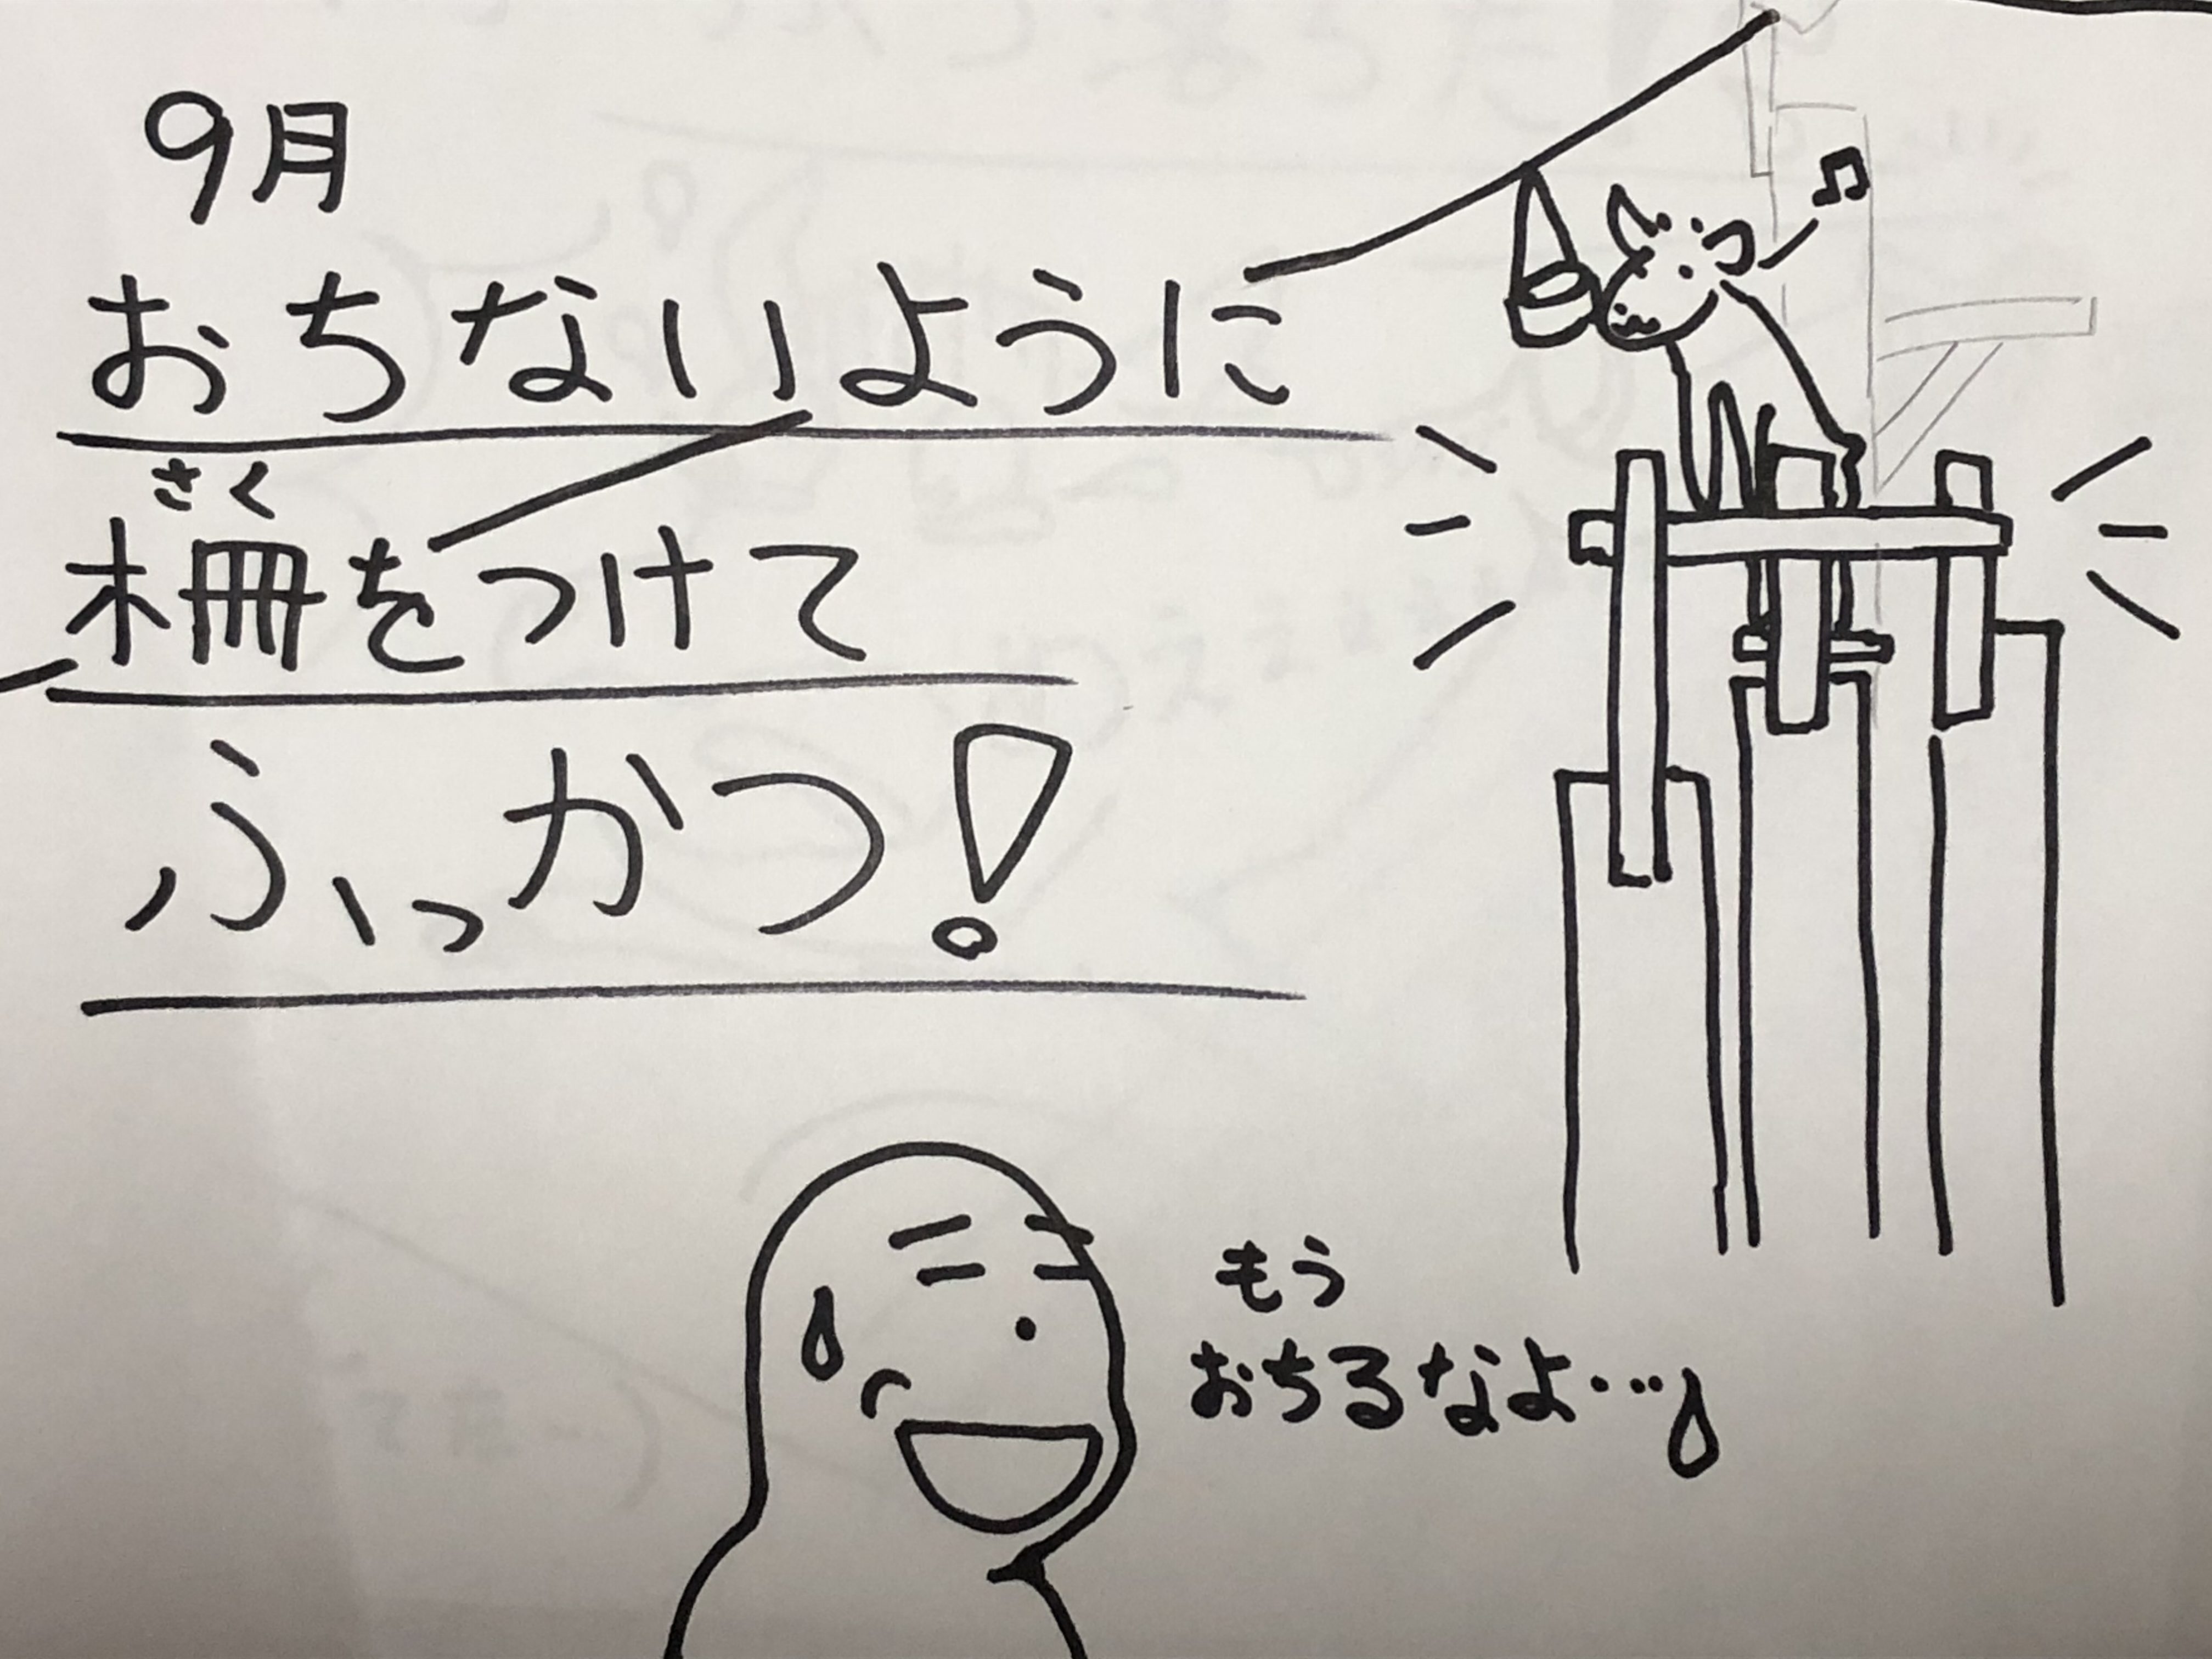 9月
おちないように
さく
柵をつけて
ふっかつ!
もう
おちるなよ…